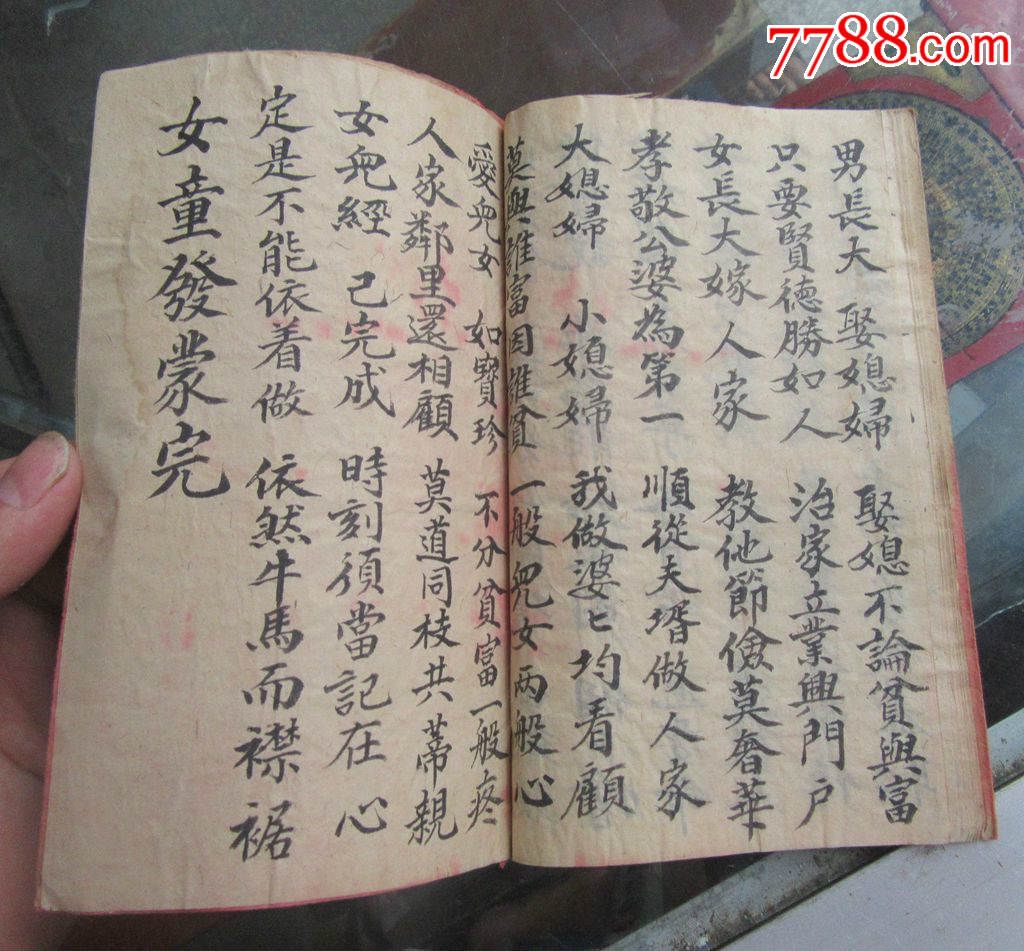 7788.com
男長大 娶媳婦 娶媳不論貧與富
只要賢德勝如人 治家立業興門户
女長大嫁人家 教他節儉莫奢華
孝敬公婆為第一 順從夫壻做人家
大媳婦 小媳婦 我做婆匕均看顧
莫與雖富周雖貧 一般兒女两般心
愛兒女 如寶珍 不分貧富一般疼
人家鄰里還相顧 莫道同枝共蒂親
女兒經 己完成 時刻須當記在心
定是不能依着做 依然牛馬而襟裾
女童發蒙完